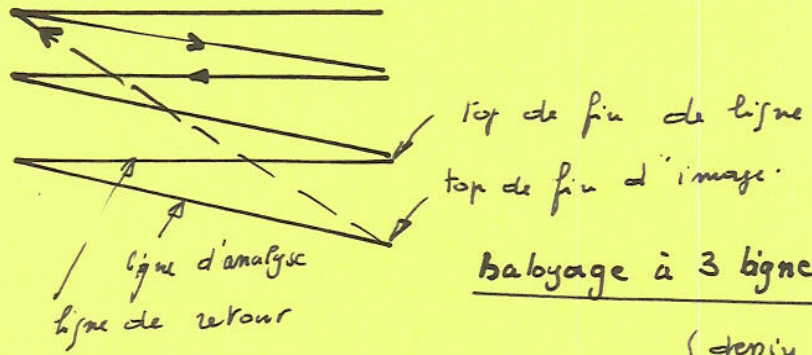 top de fin de ligne
top de fin d'image.
ligne d'analyse
ligne de retour
balayage à 3 ligne